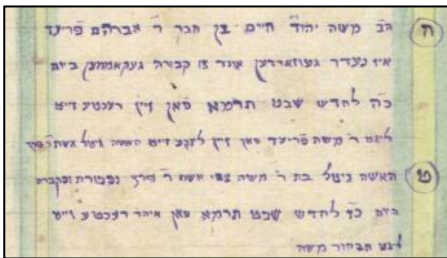 ח הב׳ משה יהוד׳ חיים בן חבר ר׳ אברהם פריעד
איז נעדר געווארדען אונד צו קבורה געקאממען ביום
כ״ה לחדש שבט תרמא פאן זיין רעכטע זייט
ליגט ר׳ משה פריעד פאן זיין לינקע זייט האשה
ט האשה גיטל בת ר׳ משה צבי אשת ר׳ נפטרת ונקברת
ביום כד לחדש שבט תרמא פאן איהר רעכטע זייט
ליגט הבחור משה